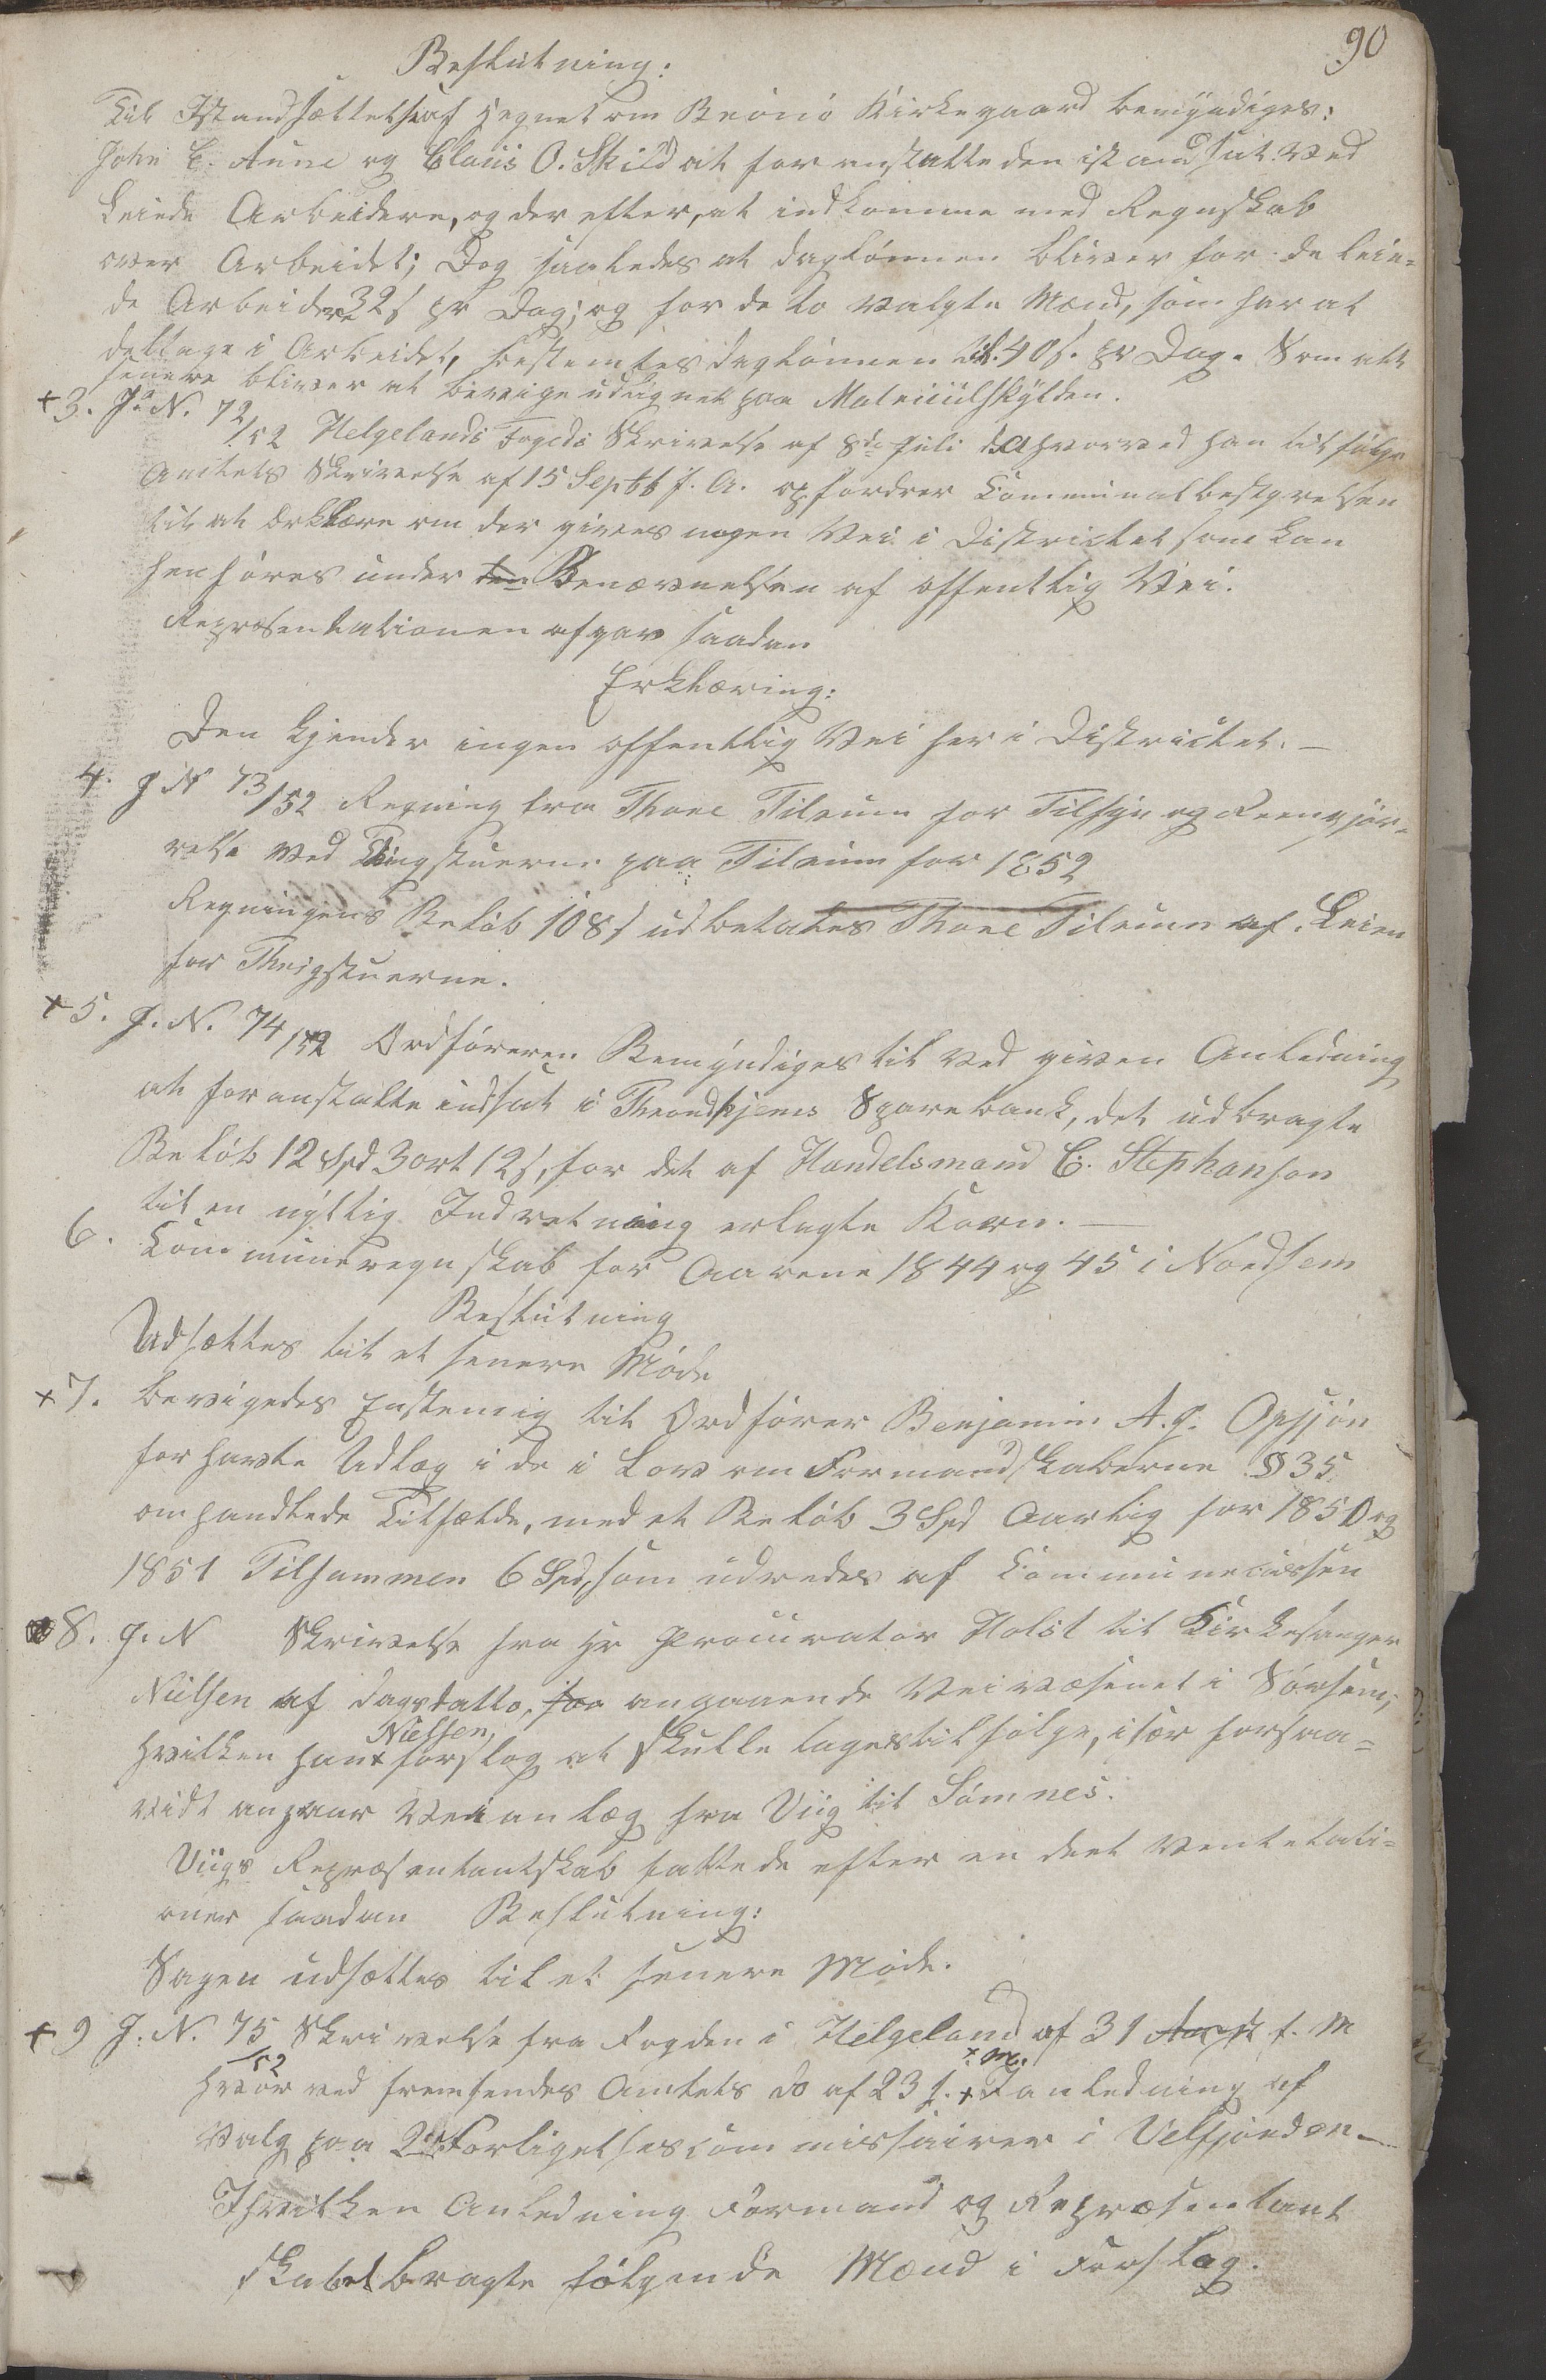 90
Beslutning:
Til Istandsættelse af Hegnet om Brönö Kirkegaard bemyndiges:
John E. Aune og Claus O. Skild at foranstalte den istandsat ved
leiede Arbeidere, og derefter, at indkomme med Regnskab
over Arbeidet; Dog saaledes at daglönnen bliver for de leie-
de Arbeidere 32 s pr Dag; og for de to valgte Mænd, som har at
deltage i Arbeidet, bestemtes daglönnen til 40 s. pr Dag. Som alt
senere bliver at bevige udlignet paa Matriculskylden.
+ 3. J. N. 72/52 Helgelands Fogeds Skrivelse af 8de Juli d. A hvorved han tilfölge
Amtets Skrivelse af 15 Septb f. A. opfordrer Communalbestyrelsen
til at Erklære om der gives nogen Vei i Districtet som kan
henföres under den Benævnelsen af offentlig Vei.
Repræsentationen afgav saadan
Erklæring:
Den kjender ingen offentlig Vei her i Districtet. —
4. J N 73/52 Regning fra Thone Tilrum for Tilsyn og Reengjör-
relse ved Thingstuerne paa Tilrum for 1852
Regningens Belöb 108 s udbetales Thone Tilrum af Leien
for Thingstuerne.
+ 5. J. N. 74/52 Ordföreren Bemyndiges til ved given Anledning
at foranstalte indsat i Throndhjems Sparebank, det udbragte
Belöb 12 Spd 3 ort 12 s, for det af Handelsmand C. Stephanson
til en nyttig Indretning erlagte Korn. —
6. Communeregnskab for Aarene 1844 og 45 i Nordhem
Beslutning
Udsættes til et senere Möde
+ 7. bevigedes Enstemig til Ordförer Benjamin A. J. Opsjön
for havte Udlæg i de i Lov om Formandskaberne § 35
omhandlede Tilfælde, med et Belöb 3 Spd Aarlig for 1850 og
1851 Tilsammen 6 Spd, som udredes af Communecassen
8. J. N Skrivelse fra Hr Procurator Holst til Kirkesanger
Nielsen af dagsdatto, for angaaende Veivæsenet i Sörhem,
Nielsen,
hvilken han x forslog at skulle tages tilfölge, især forsaa-
vidt angaar Veianlæg fra Viig til Sömnes.
Viigs Repræsentantskab fattede efter en deel Ventelati-
oner saadan Beslutning:
Sagen udsættes til et senere Möde.
+ 9 J. N. 75/52 Skrivelse fra Fogden i Helgeland af 31 August f. M
x. M.
hvorved fremsendes Amtets do af 23 f. x I anledning af
Valg paa 2de Forligelsescommissairer i Velfjorden —
I hvilken Anledning Formand og Repræsentant
skabet bragte fölgende Mænd i Forslag.